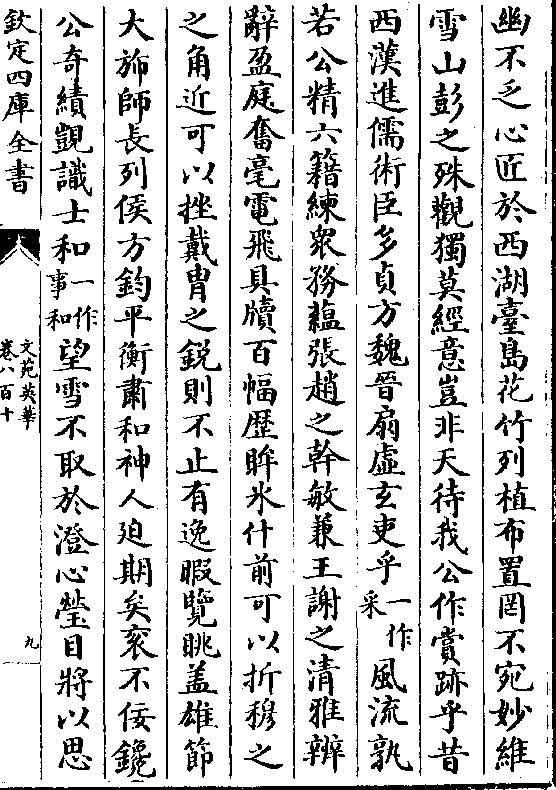 幽不乏心匠於西湖臺島花竹列植布置罔不宛妙維
雪山彭之殊觀獨莫經意豈非天待我公作賞跡乎昔
西漢進儒術臣多貞方魏晉扇虛玄吏乎一作采風流孰
若公精六籍練衆務蘊張趙之幹敏兼王謝之清雅辨
辭盈庭奮毫電飛具牘百幅歷眸氷什前可以折穆之
之角近可以挫戴胄之鋭則不止有逸暇覽眺盖雄節
大斾師長列侯方鈞平衡肅和神人廹期矣袤不佞鑱
公奇績覬識士和一作事和望雪不取於澄心瑩目將以思
欽定四庫全書
文苑英華
卷八百十
九